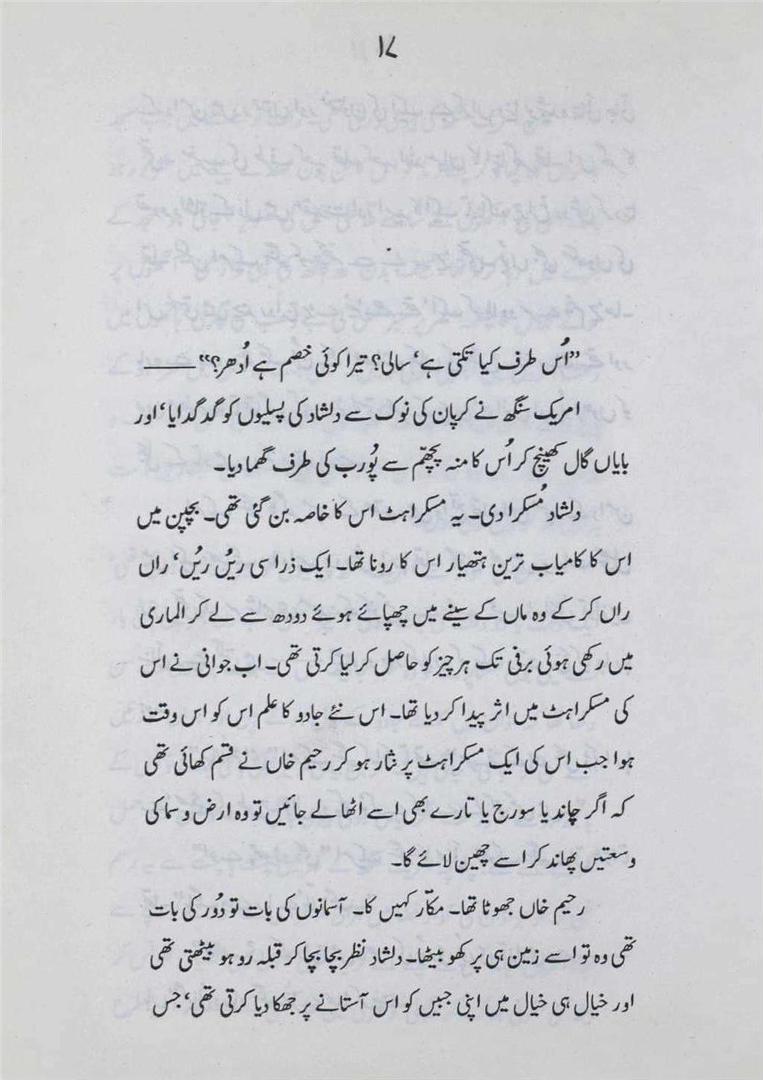 ۱۷
”اُس طرف کیا تکتی ہے‘ سالی؟ تیرا کوئی خصم ہے اُدھر؟“ ——
امریک سنگھ نے کرپان کی نوک سے دلشاد کی پسلیوں کو گدگدایا‘ اور
بایاں گال کھینچ کر اُس کا منہ پچھّم سے پُورب کی طرف گھما دیا۔
دلشاد مُسکرا دی۔ یہ مسکراہٹ اس کا خاصہ بن گئی تھی۔ بچپن میں
اس کا کامیاب ترین ہتھیار اس کا رونا تھا۔ ایک ذرا سی ریں ریں‘ راں
راں کر کے وہ ماں کے سینے میں چھپائے ہوئے دودھ سے لے کر الماری
میں رکھی ہوئی برفی تک ہر چیز کو حاصل کر لیا کرتی تھی۔ اب جوانی نے اس
کی مسکراہٹ میں اثر پیدا کر دیا تھا۔ اس نئے جادو کا علم اس کو اس وقت
ہوا جب اس کی ایک مسکراہٹ پر نثار ہو کر رحیم خاں نے قسم کھائی تھی
کہ اگر چاند یا سورج یا تارے بھی اسے اٹھا لے جائیں تو وہ ارض و سما کی
وسعتیں پھاند کر اسے چھین لائے گا۔
رحیم خاں جھوٹا تھا۔ مکّار کہیں کا۔ آسمانوں کی بات تو دُور کی بات
تھی وہ تو اسے زمین ہی پر کھو بیٹھا۔ دلشاد نظر بچا بچا کر قبلہ رو ہو بیٹھتی تھی
اور خیال ہی خیال میں اپنی جبیں کو اس آستانے پر جھکا دیا کرتی تھی‘ جس